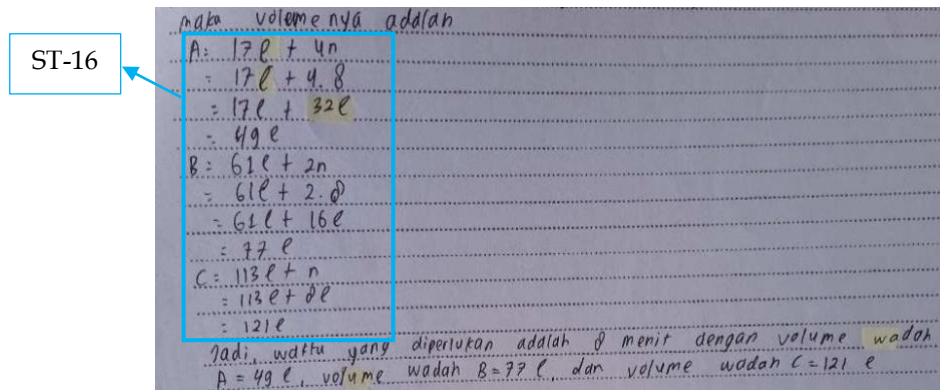 ST-16
maka volumenya adalah
A: 17ℓ + 4n
= 17ℓ + 4.8
= 17ℓ + 32ℓ
= 49ℓ
B: 61ℓ + 2n
= 61ℓ + 2.8
= 61ℓ + 16ℓ
= 77ℓ
C = 113ℓ + n
= 113ℓ + 8ℓ
= 121ℓ
Jadi, waktu yang diperlukan adalah 8 menit dengan volume wadah
A = 49ℓ, volume wadah B = 77ℓ, dan volume wadah C = 121ℓ